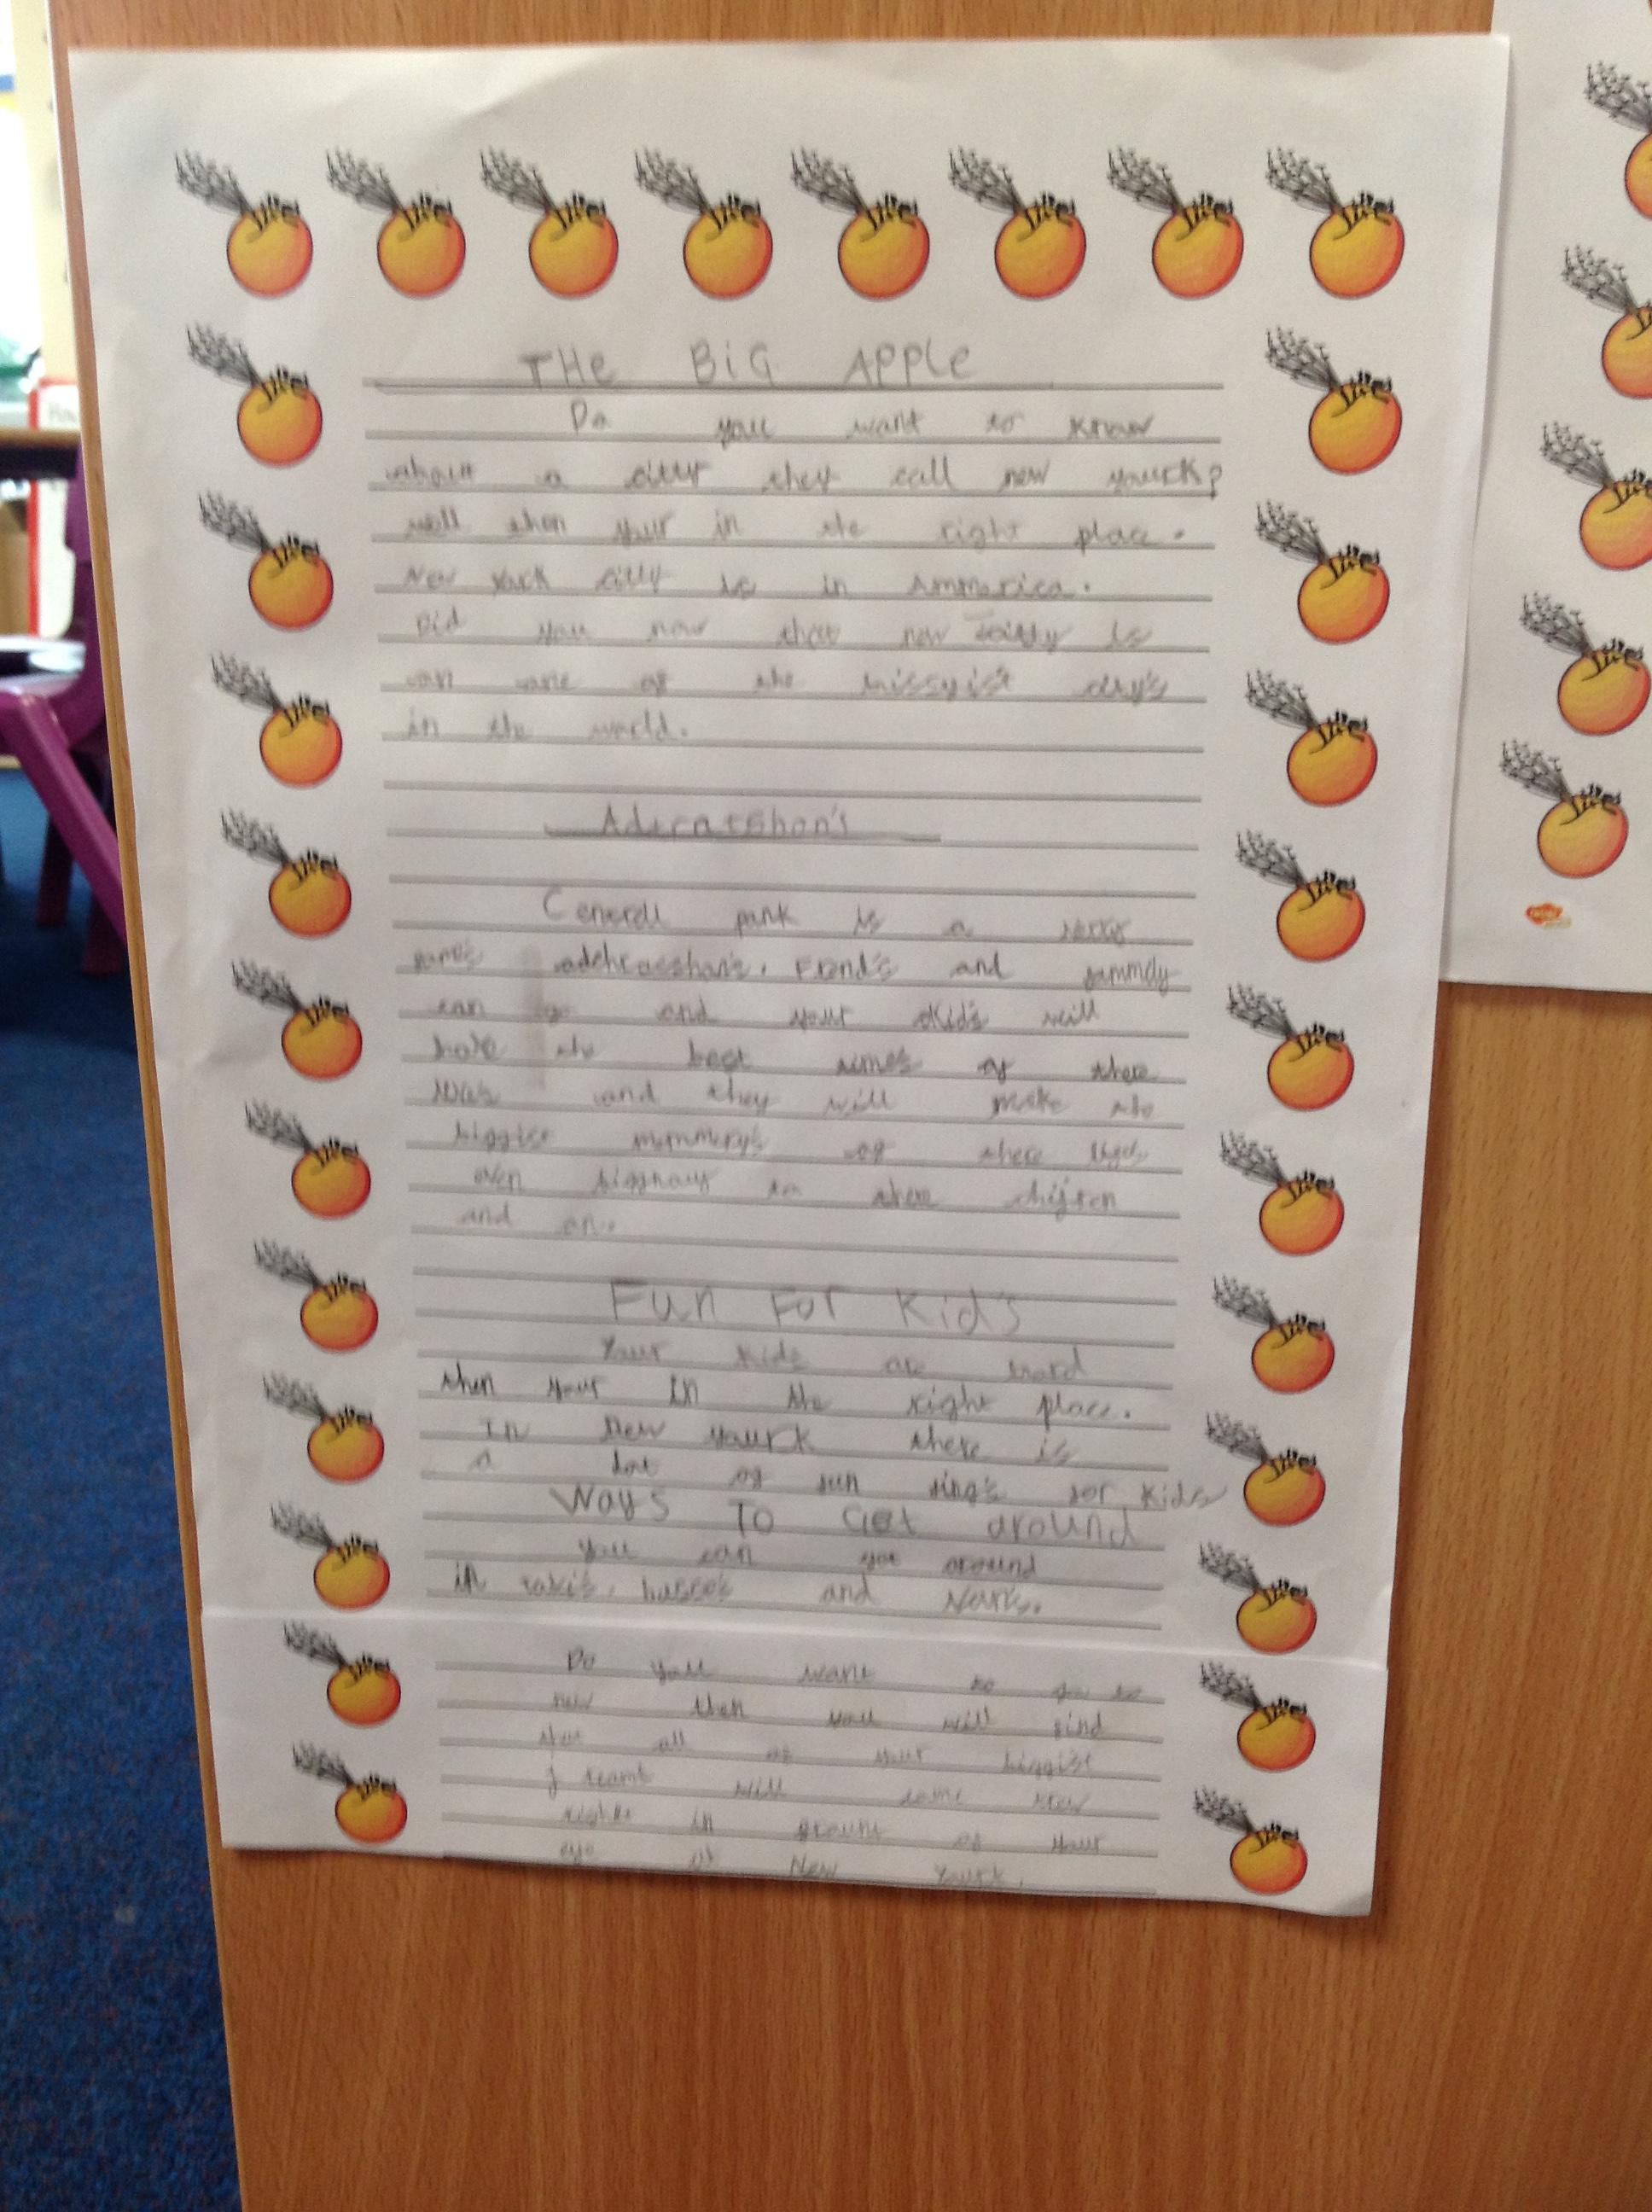 THe BiG APPle
Do you want to know
about a citty they call new yourk?
well then your in the right place.
New York citty is in Ammerica.
Did you now that new citty is
an one of the bissyist city's
in the world.
Adcratshon's
Cenerell park is a
adchrasshon's. Frend's and fammly
can go and your Kid's will
have the best times of there
lives and they will make the
biggist mommery's of there lifes
even to there
and on.
Fun For Kid's
Your kids are bord
then your in the right place.
In New yourk there is
a lot of fun for kids
Ways To Get around
you can get around
in taxi's, busse's and
Do you want to go to
new then you will find
all of your biggist
will come
right in of your
eye of New Yourk.